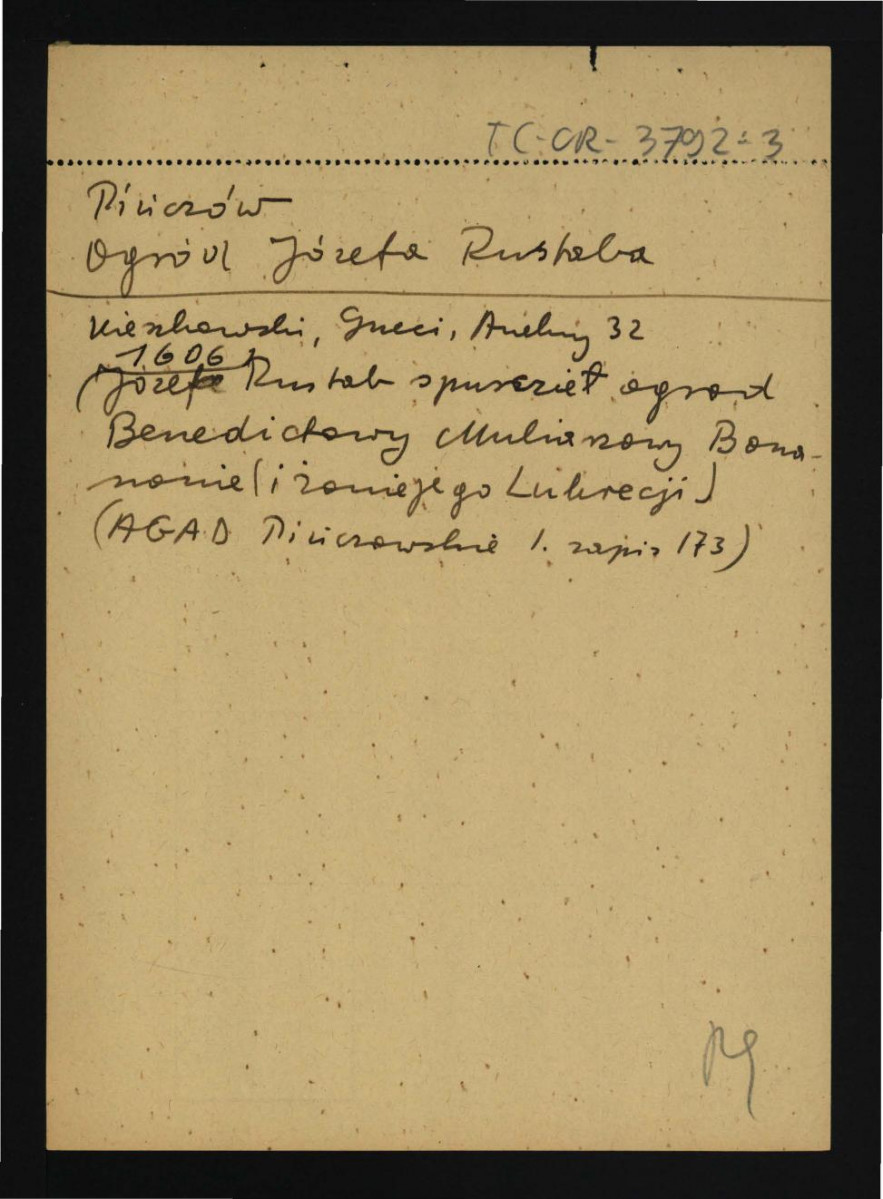 TC-CR-3792-3
Pińczów
Ogród Józefa Rustaba
Kieszkowski, Gucci, Aneksy 32
1606
(Józef Rustab spuszcził ogrod
Benedictowy Muliarzowy Bona-
nomie (i żonie jego Lukrecji)
(AGAD Pińczowskie 1. zapis 173)